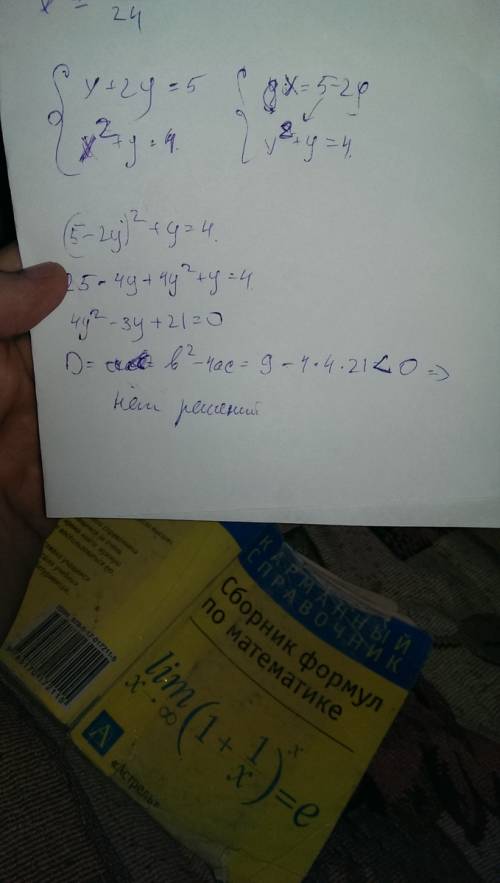 24
{ x+2y=5 { x=5-2y
x²+y=4. x²+y=4.
(5-2y)²+y=4.
25-4y+4y²+y=4
4y²-3y+21=0
D= b²-4ac= 9-4·4·21<0 =>
нет решений
КАРМАННЫЙ
СПРАВОЧНИК
Сборник формул
по математике
lim (1+1/x)^x=e
x→∞
А
«Астрель»